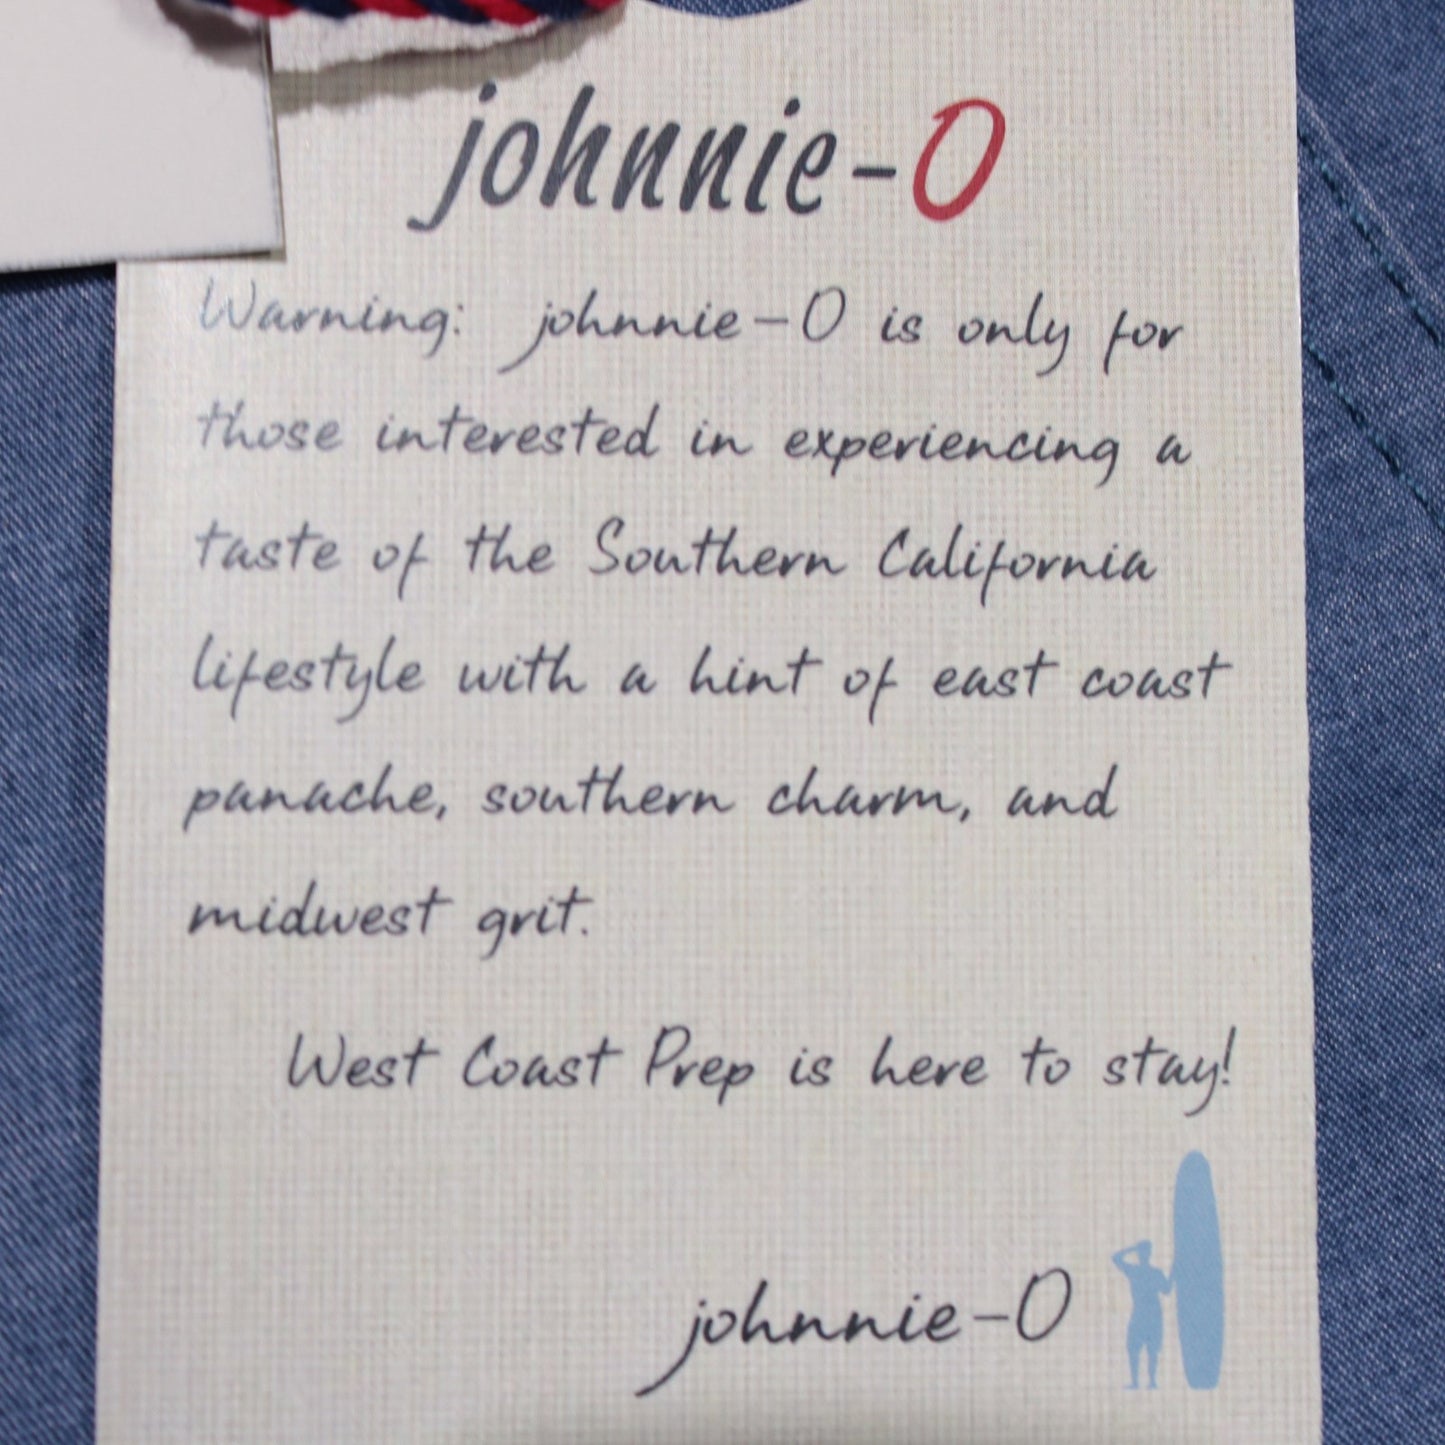 johnnie-O
Warning: johnnie-O is only for
those interested in experiencing a
taste of the Southern California
lifestyle with a hint of east coast
panache, southern charm, and
midwest grit.
West Coast Prep is here to stay!
johnnie-O